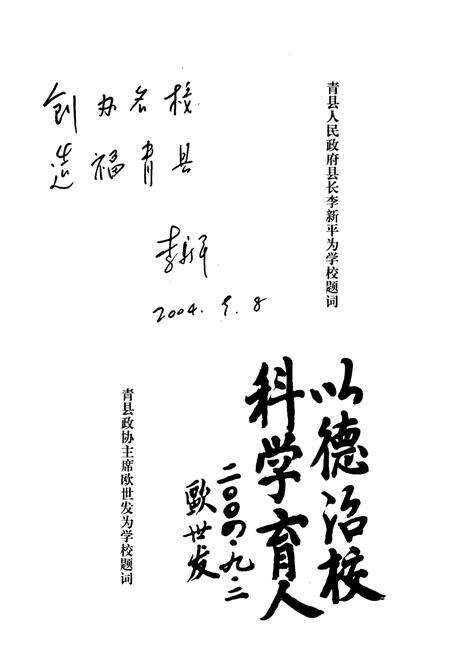 创办名校
造福青县
李新平
2004.9.8
青县人民政府县长李新平为学校题词
以德治校
科学育人
二〇〇四·九·二
歐世发
青县政协主席欧世发为学校题词